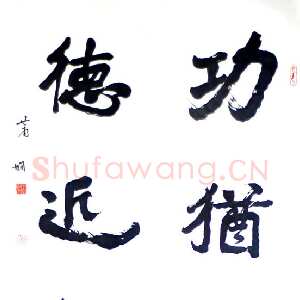 功猶
德近
Shufawang.CN